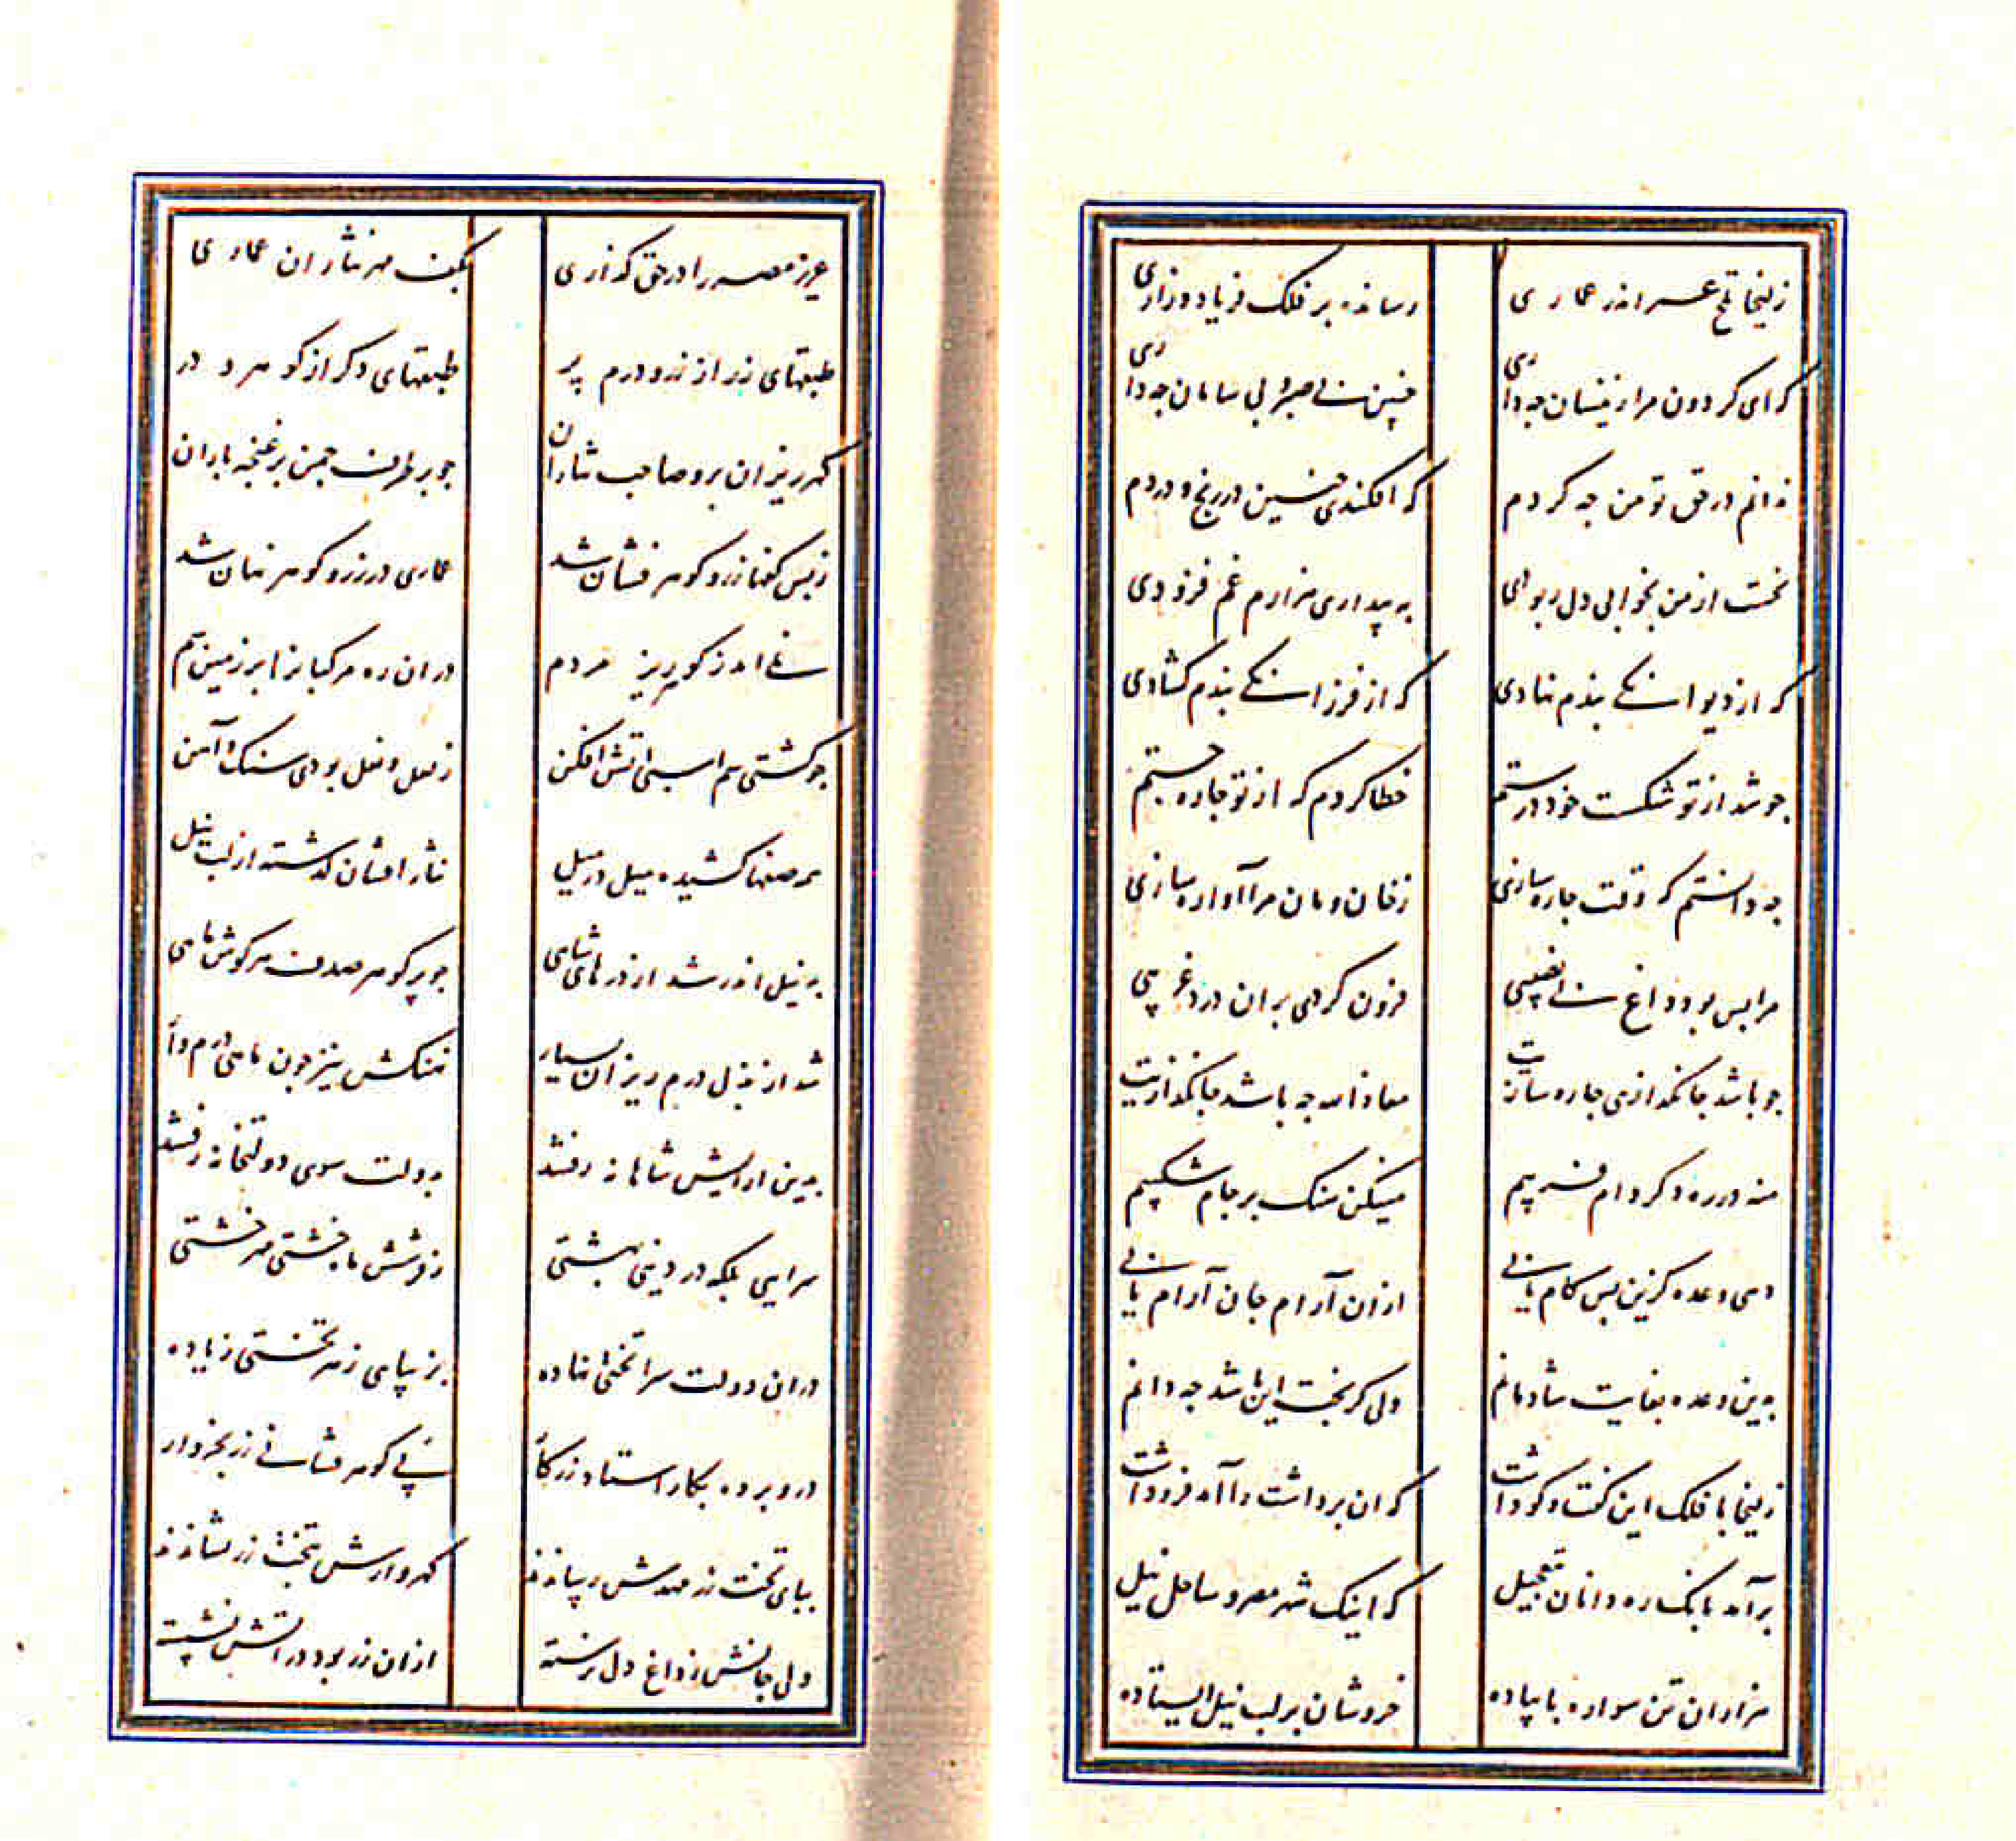 زلیخا تلخ عمر اندر عماری رسانده بر فلک فریاد و زاری
که ای گردون مرا زینسان چه داری چنین بی صبر و بی سامان چه داری
ندانم در حق تو من چه کردم که افکندی چنین در رنج و دردم
نخست از من بخوابی دل ربودی به بیداری هزارم غم فزودی
که از دیوانگی بندم نهادی که از فرزانگی بندم گشادی
چو شد از تو شکست خود درستم خطا کردم که از تو چاره جستم
چه دانستم که وقت چاره سازی ز خان و مان مرا آواره سازی
مرا بس بود داغ بی نصیبی فزون کردی بران درد غریبی
چو باشد جانگدازی چاره سازیت معاذالله چه باشد جانگدازیت
منه در ره دگر دام فریبم میفکن سنگ بر جام شکیبم
دهی وعده کزین پس کام یابی ازان آرام جان آرام یابی
بدین وعده بغایت شادمانم ولی گر بخت این باشد چه دانم
زلیخا با فلک این گفت و گو داشت که ان برداشت را آمد فروداشت
برآمد بانگ ره دانان بتعجیل که اینک شهر مصر و ساحل نیل
هزاران تن سواره با پیاده خروشان بر لب نیل ایستاده
عزیز مصر را در حق گذاری بکف هر نثار ان عماری
طبقهای زر از زر و درم پر طبقهای دگر از گوهر و در
گهر ریزان برو صاحب نثاران چو بر طرف چمن بر غنچه باران
ز بس کفها زر و گوهر فشان شد عماری در زر و گوهر نهان شد
نمی امد ز گوهر ریز مردم دران ره مرکبانرا بر زمین سم
چو گشتی سم اسبی اتش افکن ز لعل و نعل بودی سنگ و آهن
همه صفها کشیده میل در میل نثار افشان گذشته از لب نیل
به نیل اندر شد از درهای شاهی چو پر گوهر صدف هر گوش ماهی
شد از بذل درم ریزان بسیار نهنگش نیز چون ماهی درم دار
بدین ارایش شاهانه رفتند بدولت سوی دولتخانه رفتند
سرایی بلکه در دینی بهشتی ز فرشش ماه خشتی مهر خشتی
دران دولت سرا تختی نهاده ز زیبایی ز هر تختی زیاده
درو برده بکار استاد زرکار پی گوهر فشانی زر بخروار
بپای تخت زر مهدش رساندند گهروارش بتخت زر نشاندند
ولی جانش ز داغ دل نرسته ازان زر بود در اتش نشسته